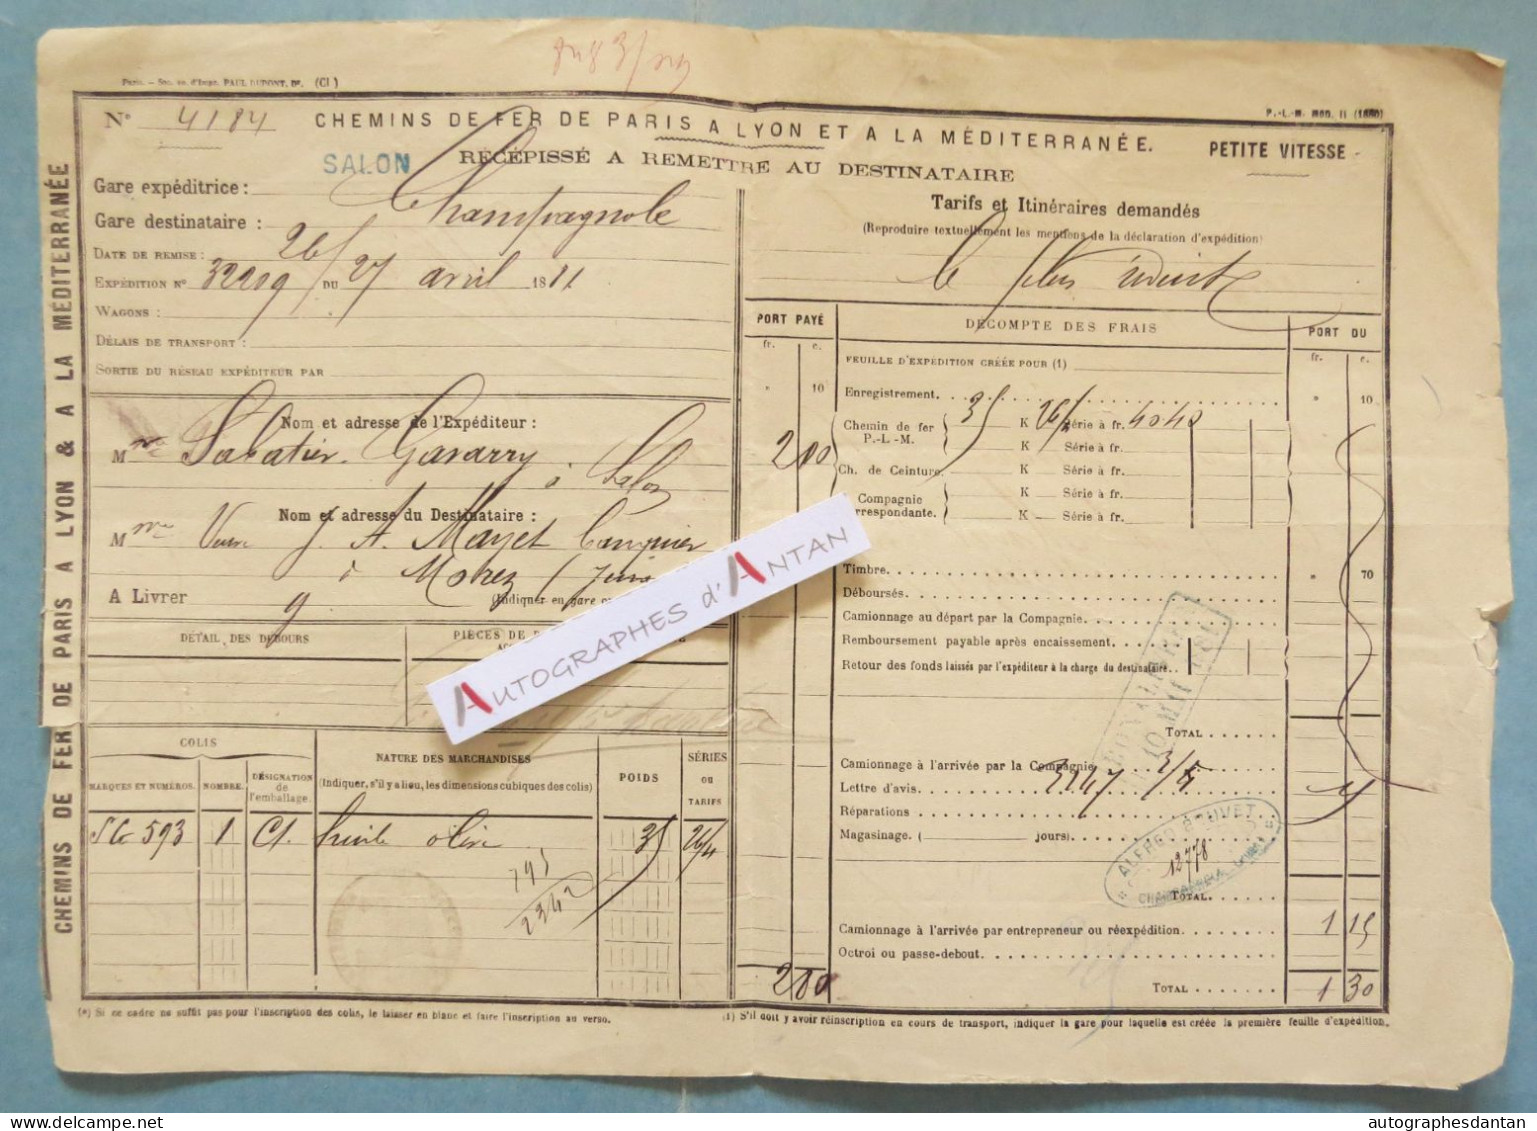 Paris. — Soc. an. d'Impr. PAUL DUPONT, Dr. (Cl.)
P.-L.-M. Mod. 11 (1880)
CHEMINS DE FER DE PARIS A LYON & A LA MÉDITERRANÉE
N° 4184
CHEMINS DE FER DE PARIS A LYON ET A LA MÉDITERRANÉE.
PETITE VITESSE
RÉCÉPISSÉ A REMETTRE AU DESTINATAIRE
Gare expéditrice : SALON
Gare destinataire : Champagnole
DATE DE REMISE : 26/
EXPÉDITION N° 32219 DU 27 avril 1881
WAGONS :
DÉLAIS DE TRANSPORT :
SORTIE DU RÉSEAU EXPÉDITEUR PAR
Nom et adresse de l'Expéditeur :
M Sabatier Gavarry
à Salon
Nom et adresse du Destinataire :
Mme Veuve J. A. Mayet Banquier
à Morez (Jura
A LIVRER g. (Indiquer en gare
DÉTAIL DES DÉBOURS
PIÈCES DE
Tarifs et Itinéraires demandés
(Reproduire textuellement les mentions de la déclaration d'expédition)
le plus réduit
PORT PAYÉ
fr. c.
" 10
2 00
2 00
DÉCOMPTE DES FRAIS
PORT DU
fr. c.
FEUILLE D'EXPÉDITION CRÉÉE POUR (1)
Enregistrement. " 10
Chemin de fer P.-L-M. 35 K 26/4 Série à fr. 40 40
K Série à fr.
Ch. de Ceinture. K Série à fr.
Compagnie correspondante. K Série à fr.
K Série à fr.
Timbre. " 70
Déboursés.
Camionnage au départ par la Compagnie.
Remboursement payable après encaissement.
Retour des fonds laissés par l'expéditeur à la charge du destinataire.
TOTAL
Camionnage à l'arrivée par la Compagnie
Lettre d'avis. 3147 3/5
Réparations
Magasinage. ( jours).
TOTAL.
Camionnage à l'arrivée par entrepreneur ou réexpédition. 1 15
Octroi ou passe-debout.
TOTAL 1 30
10 MAI 1881
ALFRED BOUVET
12778
COLIS
MARQUES ET NUMÉROS. NOMBRE. DÉSIGNATION de l'emballage.
NATURE DES MARCHANDISES
(Indiquer, s'il y a lieu, les dimensions cubiques des colis)
POIDS
SÉRIES ou TARIFS
SG 593 1 Ct. huile olive 35 26/4
795
2342
(*) Si ce cadre ne suffit pas pour l'inscription des colis, le laisser en blanc et faire l'inscription au verso.
(1) S'il doit y avoir réinscription en cours de transport, indiquer la gare pour laquelle est créée la première feuille d'expédition.
AUTOGRAPHES d'ANTAN
autographesdantan